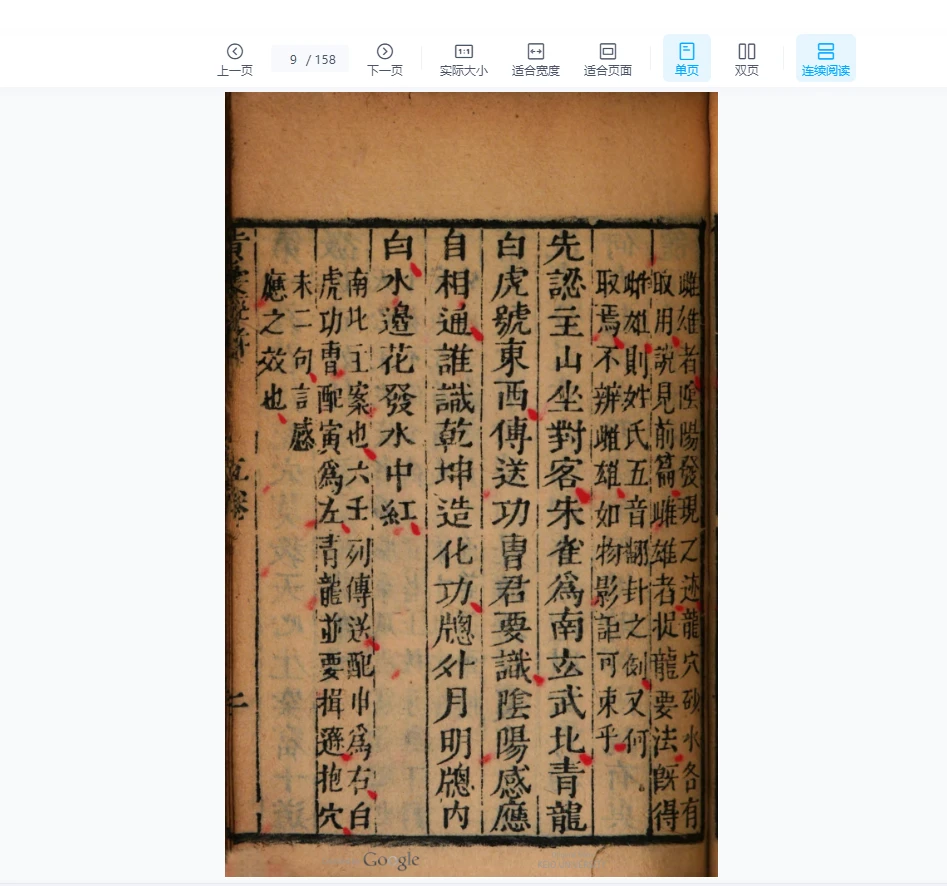 上一页
9 / 158
下一页
1:1
实际大小
适合宽度
适合页面
单页
双页
连续阅读
雌雄者陰陽發現之迹龍穴砂水各有
取用說見前篇雌雄者捉龍要法旣得
雌雄則姓氏五音翻卦之例又何
取焉不辨雌雄如物影詎可束乎
先認主山坐對客朱雀爲南玄武北青龍
白虎號東西傳送功曹君要識陰陽感應
自相通誰識乾坤造化功牕外月明牕内
白水邉花發水中紅
南北主案也六壬列傳送配申爲右白
虎功曹配寅爲左青龍並要揖遜抱穴
末二句言感
應之效也
Google